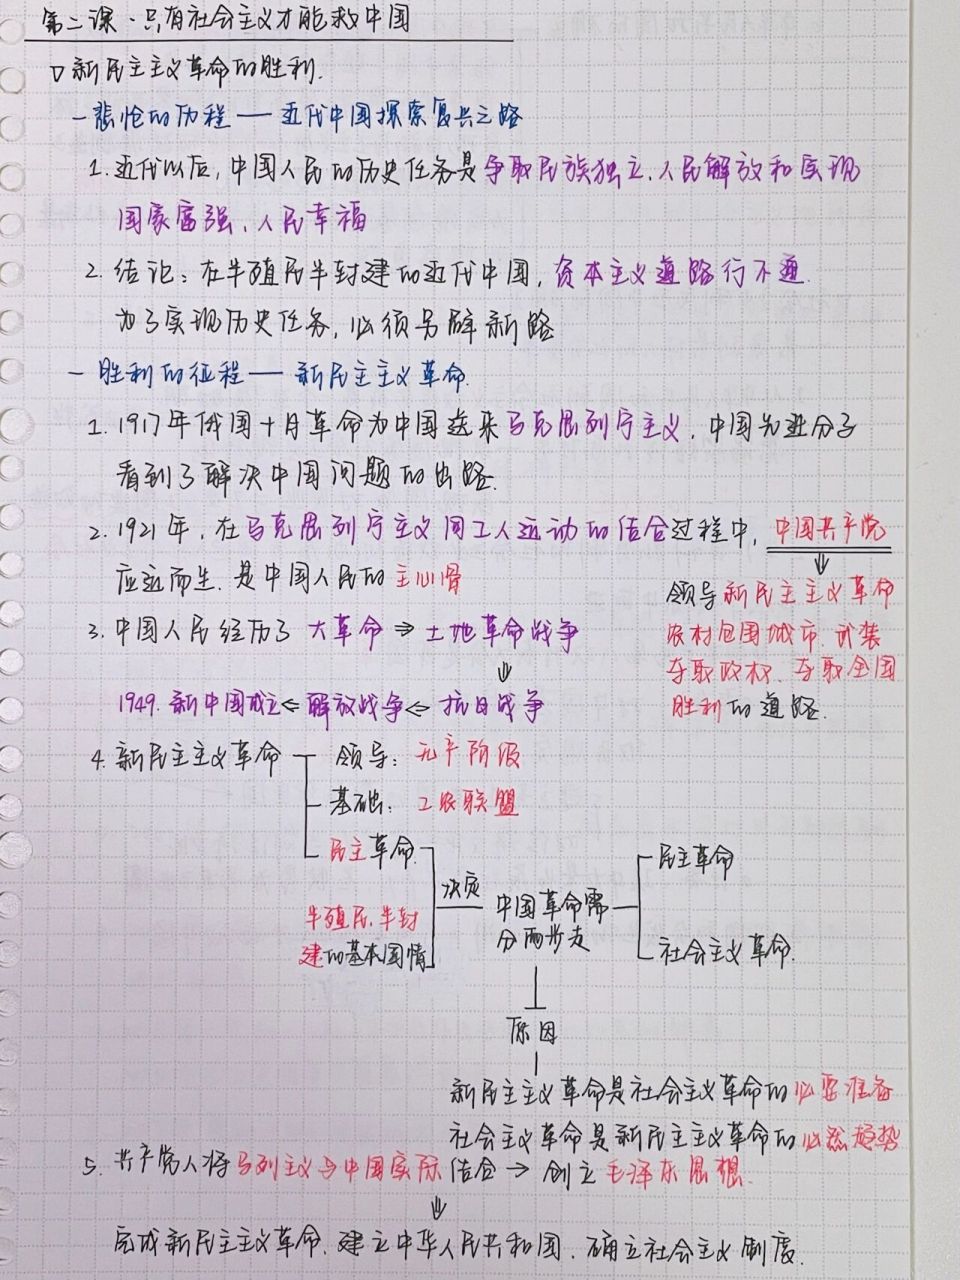 第二课·只有社会主义才能救中国
▽新民主主义革命的胜利.
一悲怆的历程——近代中国探索复兴之路
1.近代以后,中国人民的历史任务是争取民族独立、人民解放和实现
国家富强、人民幸福
2.结论:在半殖民半封建的近代中国,资本主义道路行不通.
为了实现历史任务,必须另辟新路
一胜利的征程——新民主主义革命.
1.1917年俄国十月革命为中国送来马克思列宁主义,中国先进分子
看到了解决中国问题的出路.
2.1921年,在马克思列宁主义同工人运动的结合过程中,中国共产党
应运而生.是中国人民的主心骨
⇓
领导新民主主义革命
农村包围城市、武装
夺取政权、夺取全国
胜利的道路.
3.中国人民经历了 大革命⇒土地革命战争
⇓
1949.新中国成立⇐解放战争⇐抗日战争
4.新民主主义革命
领导:无产阶级
基础:工农联盟
民主革命.
半殖民、半封
建的基本国情
决定
中国革命需
分两步走
民主革命
社会主义革命.
原因
新民主主义革命是社会主义革命的必要准备
社会主义革命是新民主主义革命的必然趋势
5.共产党人将马列主义与中国实际结合→创立毛泽东思想.
⇓
完成新民主主义革命、建立中华人民共和国、确立社会主义制度.